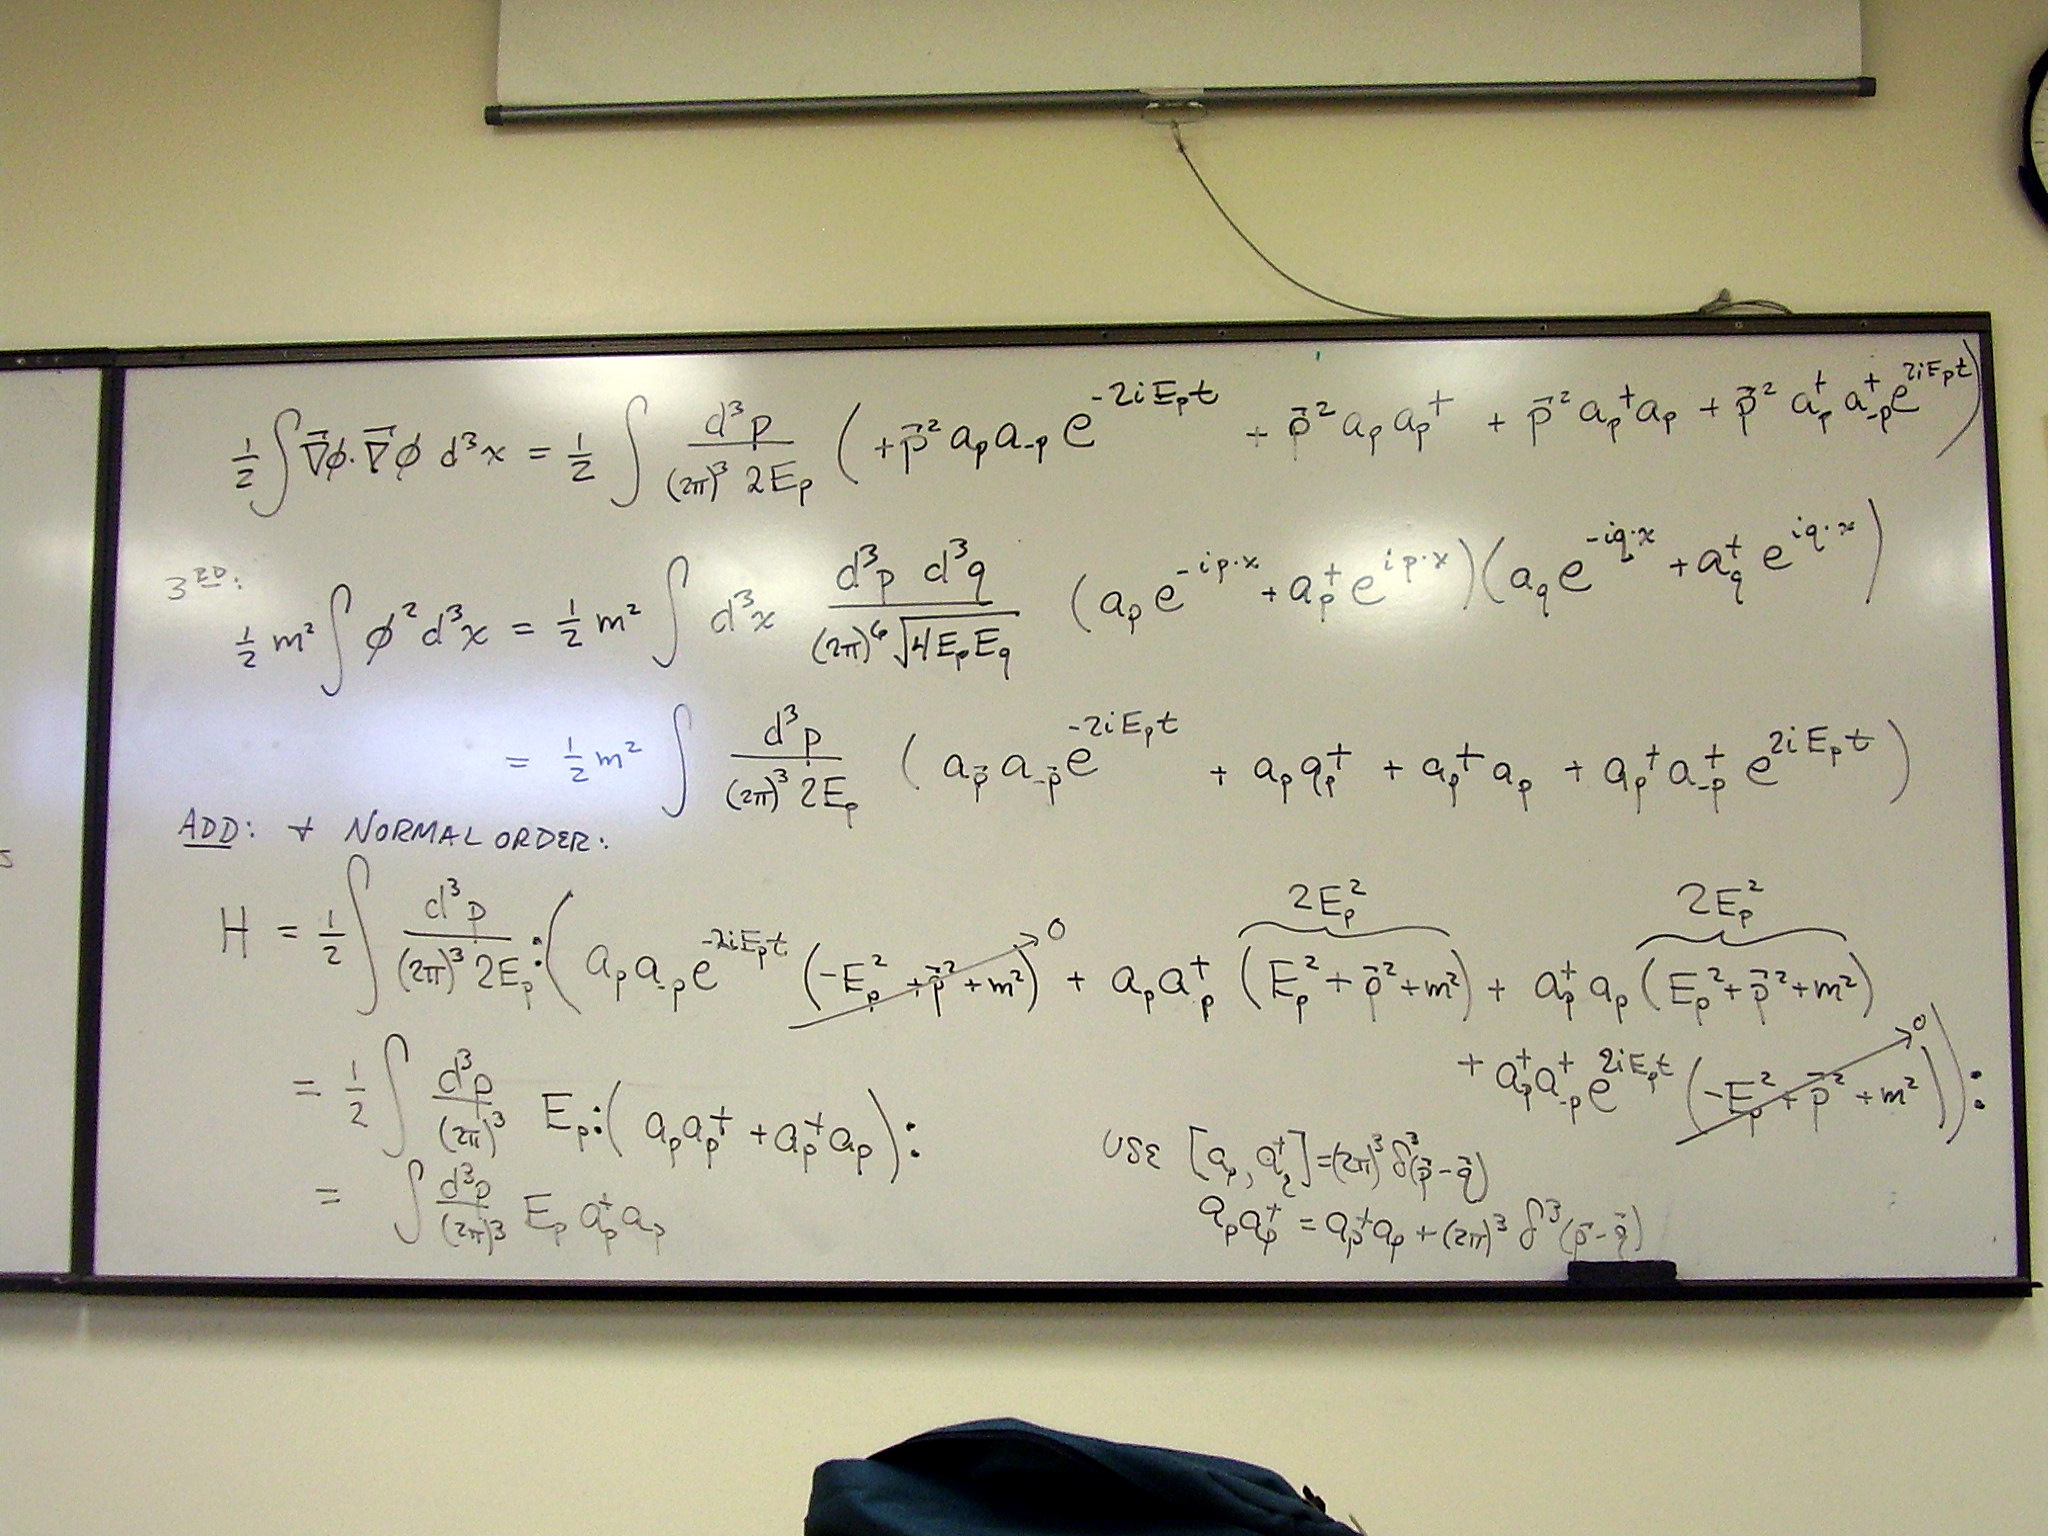 ½ ∫ ∇⃗φ·∇⃗φ d³x = ½ ∫ d³p/((2π)³ 2E_p) ( +p⃗² a_p a_-p e^(-2iE_p t) + p⃗² a_p a_p† + p⃗² a_p† a_p + p⃗² a_p† a_-p† e^(2iE_p t) )
3RD:
½ m² ∫ φ² d³x = ½ m² ∫ d³x d³p d³q/((2π)⁶ √(4E_p E_q)) ( a_p e^(-ip·x) + a_p† e^(ip·x) )( a_q e^(-iq·x) + a_q† e^(iq·x) )
= ½ m² ∫ d³p/((2π)³ 2E_p) ( a_p⃗ a_-p⃗ e^(-2iE_p t) + a_p a_p† + a_p† a_p + a_p† a_-p† e^(2iE_p t) )
ADD: + NORMAL ORDER:
2E_p² 2E_p²
H = ½ ∫ d³p/((2π)³ 2E_p) :( a_p a_-p e^(-2iE_p t) (-E_p² + p⃗² + m²) → 0 + a_p a_p† (E_p² + p⃗² + m²) + a_p† a_p (E_p² + p⃗² + m²)
+ a_p† a_-p† e^(2iE_p t) (-E_p² + p⃗² + m²) → 0 ):
= ½ ∫ d³p/(2π)³ E_p :( a_p a_p† + a_p† a_p ):
USE [a_p, a_q†] = (2π)³ δ³(p⃗ - q⃗)
= ∫ d³p/(2π)³ E_p a_p† a_p
a_p a_p† = a_p† a_p + (2π)³ δ³(p⃗ - q⃗)